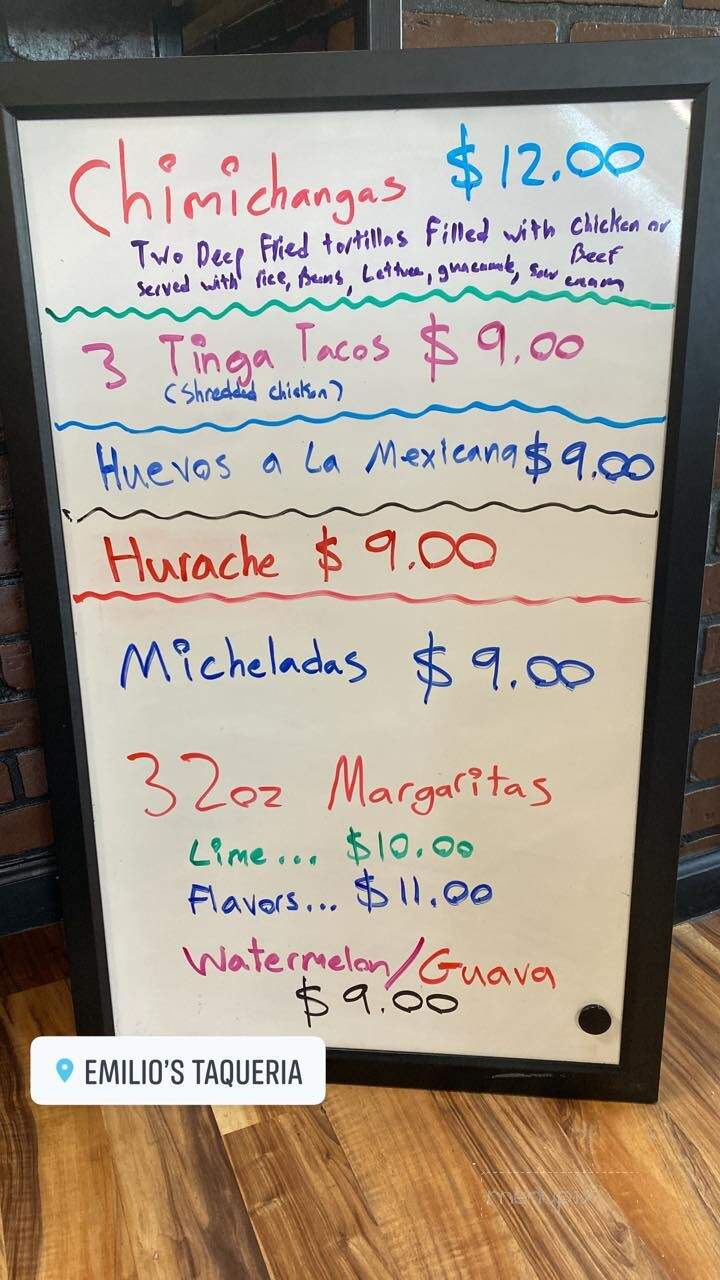 Chimichangas $12.00
Two Deep Fried tortillas filled with chicken or Beef
served with rice, Beans, Lettuce, guacamole, sour cream
3 Tinga Tacos $9.00
(Shredded chicken)
Huevos a La Mexicana $9.00
Hurache $9.00
Micheladas $9.00
32oz Margaritas
Lime... $10.00
Flavors... $11.00
Watermelon/Guava
$9.00
EMILIO'S TAQUERIA
menupix